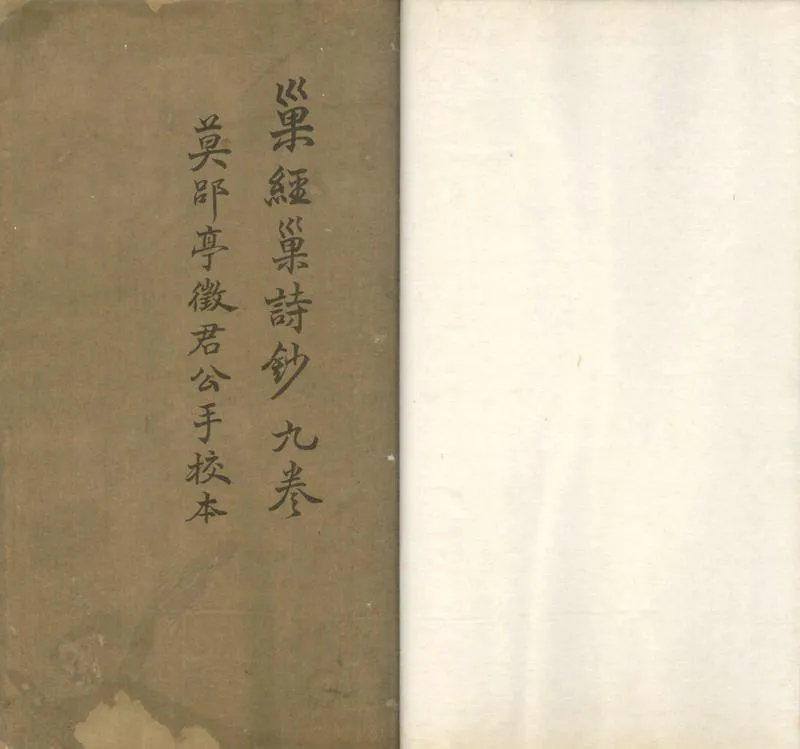 巢經巢詩鈔 九卷
莫郘亭徵君公手校本